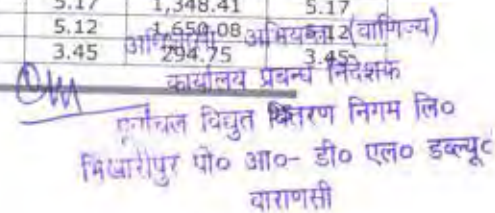 5.17 1,348.41 5.17
5.12 1,650.08 5.12
3.45 294.75 3.45
अभियन्ता (वाणिज्य)
कार्यालय प्रबन्ध निदेशक
पूर्वांचल विद्युत वितरण निगम लि०
भिखारीपुर पो० आ०- डी० एल० डब्ल्यू०
वाराणसी